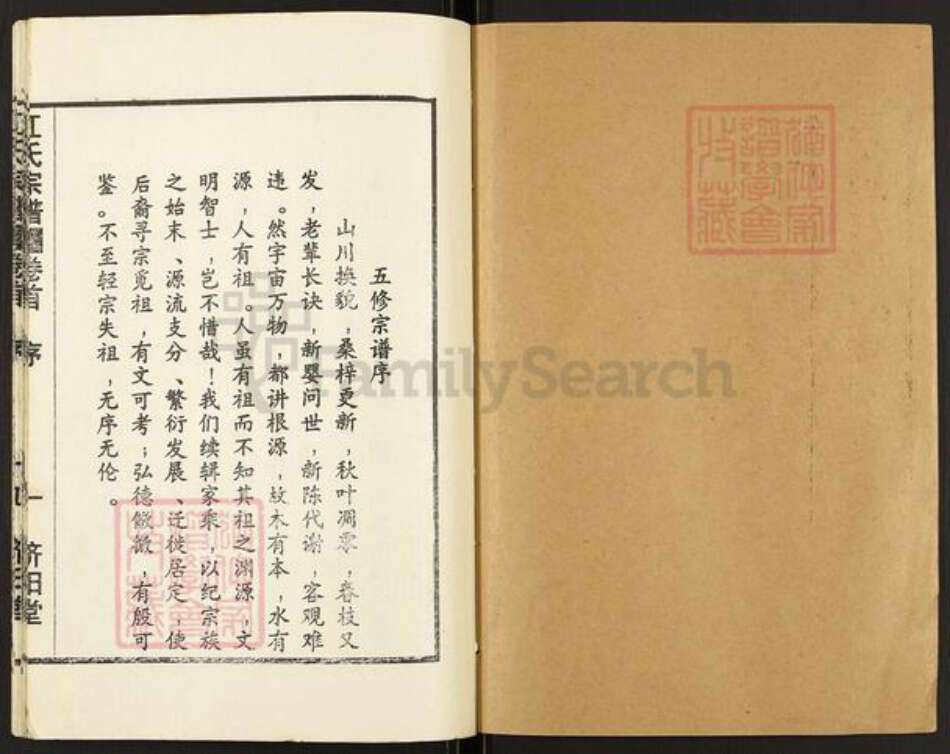 五修宗谱序
山川换貌，桑梓更新，秋叶凋零，春枝又
发，老辈长诀，新婴问世，新陈代谢，客观难
违。然宇宙万物，都讲根源，故木有本，水有
源，人有祖。人虽有祖而不知其祖之渊源，文
明智士，岂不惜哉！我们续辑家乘，以纪宗族
之始末、源流支分、繁衍发展、迁徙居定，使
后裔寻宗觅祖，有文可考；弘德儆微，有殷可
鉴。不至轻宗失祖，无序无伦。
江氏宗谱 卷首 序 一 济阳堂
FamilySearch